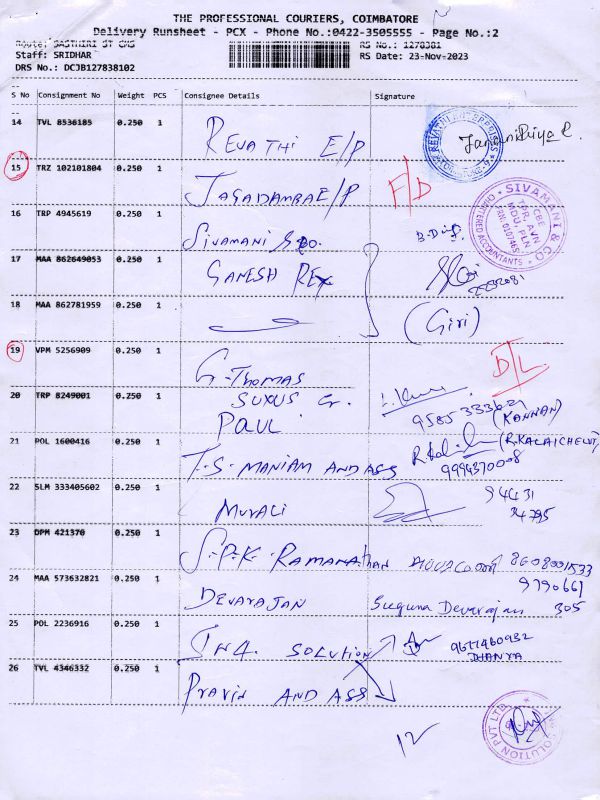 THE PROFESSIONAL COURIERS, COIMBATORE
Delivery Runsheet - PCX - Phone No.:0422-3505555 - Page No.:2
Route: SASTHIRI ST CMS
RS No.: 1278381
Staff: SRIDHAR
RS Date: 23-Nov-2023
DRS No.: DCJB127838102
S No Consignment No Weight PCS Consignee Details Signature
14 TVL 8536185 0.250 1 REVATHI E/P
REVATHI ENTERPRISES
15 TRZ 102101804 0.250 1 JAGADAMBAE/P F/D
16 TRP 4945619 0.250 1 SIVAMANI & CO.
SIVAMANI & CO
CBE
TPR, AVN
MDU, PLN
CHARTERED ACCOUNTANTS
17 MAA 862649053 0.250 1 GANESH REX
18 MAA 862781959 0.250 1 (Giri)
19 VPM 5256909 0.250 1 G. THOMAS D/L
20 TRP 8249001 0.250 1 SUXUS G.
PAUL
(KANNAN)
21 POL 1600416 0.250 1 T.S. MANIAM AND ASS (R.KALAICHELVI)
9994370008
22 SLM 333405602 0.250 1 MURALI 94431
23 DPM 421370 0.250 1 S.P.K. RAMANATHAN 8608001533
24 MAA 573632821 0.250 1 DEVARAJAN Suguna Devarajan 9790661
305
25 POL 2236916 0.250 1 IN4 SOLUTION 9677460932
DHANYA
26 TVL 4346332 0.250 1 PRAVIN AND ASS
12
SOLUTION PVT LTD